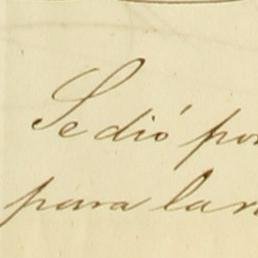 Se dió por
para la